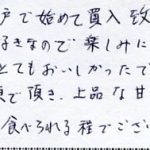 戸で始めて買入致
好きなので楽しみに
とてもおいしかったで
頂き、上品な甘
食べられる程でござい